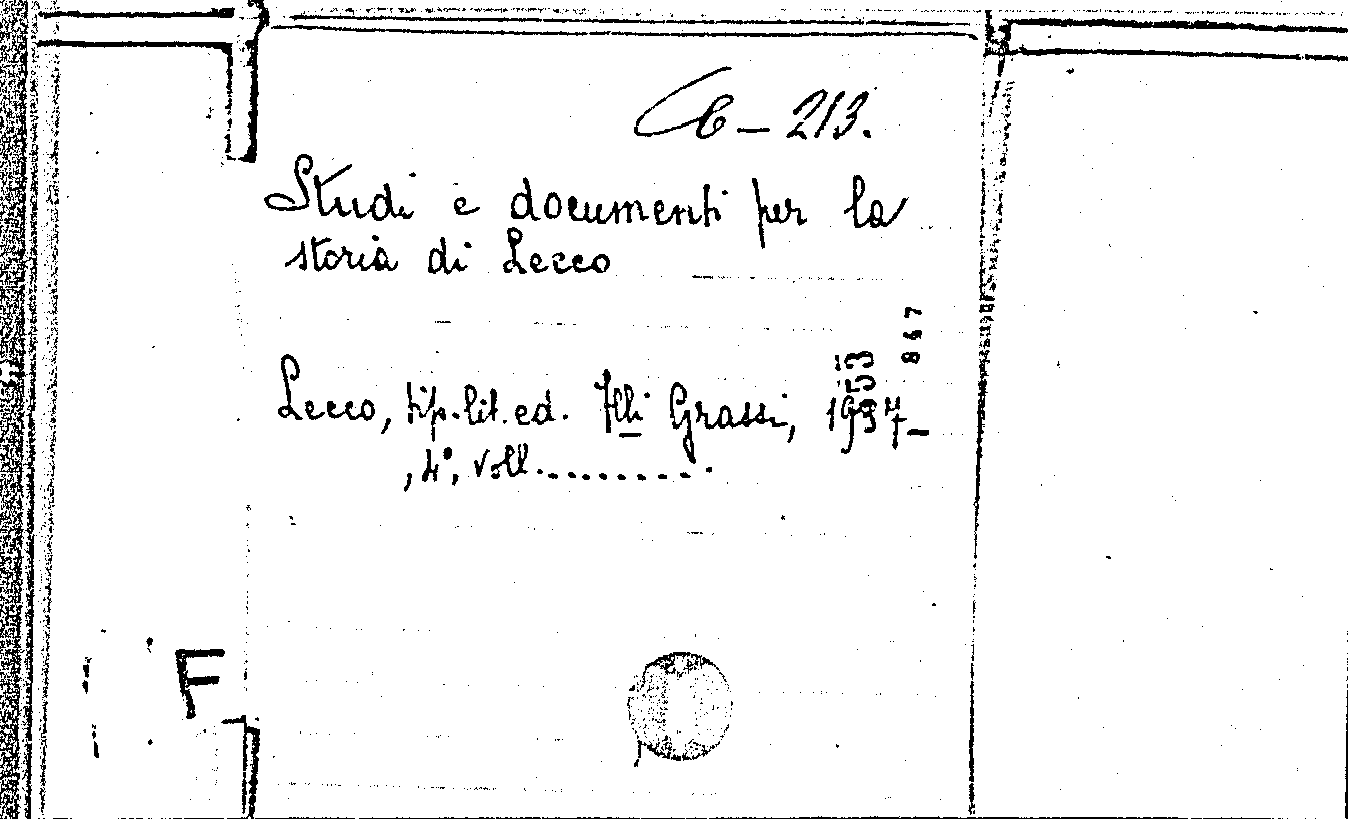 C6 - 213.
Studi e documenti per la
storia di Lecco
867
Lecco, tip. lit. ed. F.lli Grassi, 1937-
, 4°, voll. .........
F